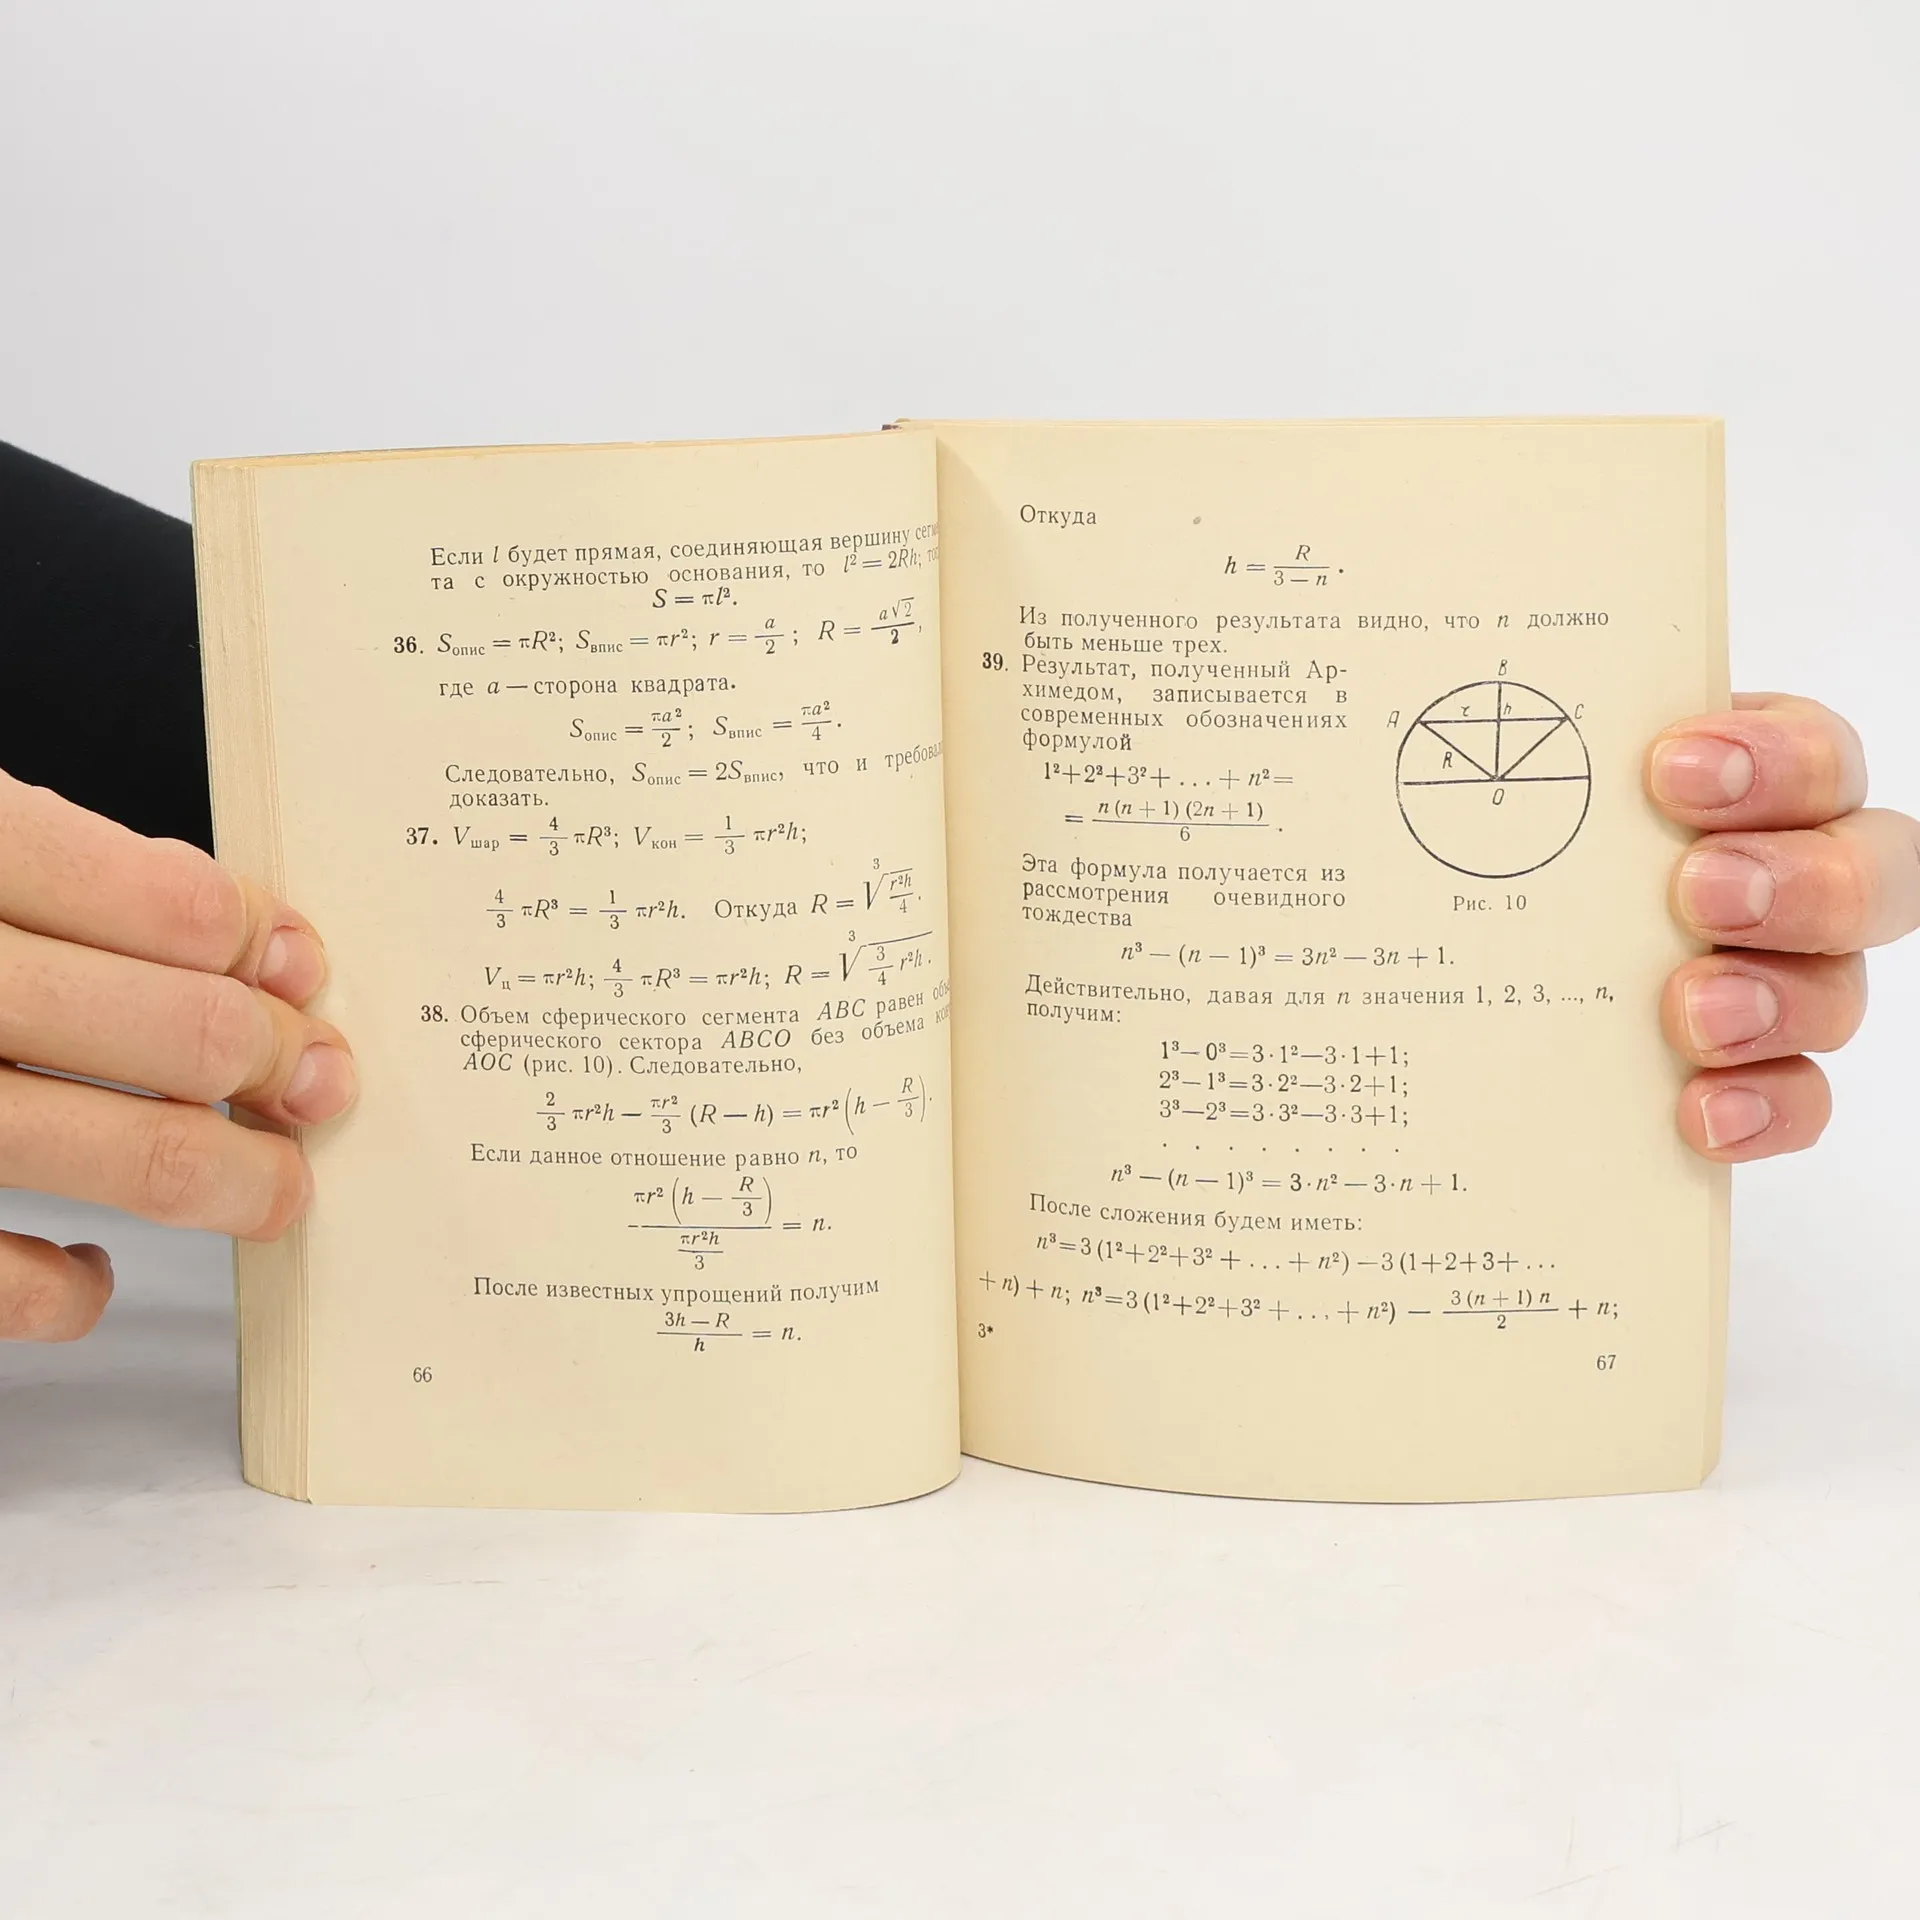 Если l будет прямая, соединяющая вершину
та с окружностью основания, то l² = 2Rh;
S = πl².
36. Sопис = πR²; Sвпис = πr²; r = a/2; R = a√2/2,
где a — сторона квадрата.
Sопис = πa²/2; Sвпис = πa²/4.
Следовательно, Sопис = 2Sвпис, что и
доказать.
37. Vшар = 4/3 πR³; Vкон = 1/3 πr²h;
4/3 πR³ = 1/3 πr²h. Откуда R = ∛(r²h/4).
Vц = πr²h; 4/3 πR³ = πr²h; R = ∛(3/4 r²h).
38. Объем сферического сегмента ABC равен
сферического сектора ABCO без объема
AOC (рис. 10). Следовательно,
2/3 πr²h — πr²/3 (R — h) = πr² (h — R/3).
Если данное отношение равно n, то
πr² (h — R/3) / (πr²h/3) = n.
После известных упрощений получим
(3h — R)/h = n.
66
Откуда
h = R/(3 — n).
Из полученного результата видно, что n должно
быть меньше трех.
39. Результат, полученный Ар-
химедом, записывается в
современных обозначениях
формулой
1²+2²+3²+ ... + n²=
= n (n + 1) (2n + 1)/6.
Эта формула получается из
рассмотрения очевидного
тождества
B
A
r
h
C
R
O
Рис. 10
n³ — (n — 1)³ = 3n² — 3n + 1.
Действительно, давая для n значения 1, 2, 3, ..., n,
получим:
1³—0³=3·1²—3·1+1;
2³—1³=3·2²—3·2+1;
3³—2³=3·3²—3·3+1;
. . . . . . . .
n³ — (n — 1)³ = 3·n² — 3·n + 1.
После сложения будем иметь:
n³=3 (1²+2²+3² + ... + n²) —3 (1+2+3+ ...
+ n) + n; n³=3 (1²+2²+3² + ... + n²) — 3 (n + 1) n/2 + n;
3*
67